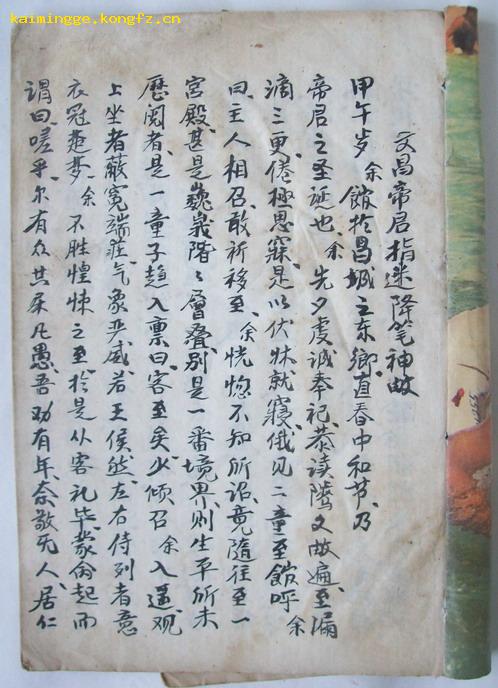 kaimingge.kongfz.cn
文昌帝君指迷降笔神
甲午岁余館扵昌城之东鄉直春中和节乃
帝君之圣诞也余先夕虔诚奉祀恭读隲文遍至漏
滴三更倦極思寐是以伏牀就寝俄见二童至館呼余
曰主人相召敢祈移至余恍惚不知所詔竟隨往至一
宮殿甚是巍峩階々層叠别是一番境界则生平所未
歷阅者是一童子趋入禀曰客至矣少倾召余入遥观
上坐者蔽冕端莊气象严威若王侯然左右侍列者意
衣冠楚楚余不胜惶悚之至扵是从容礼毕蒙命起而
謂曰嗟乎尔有众其凡愚吾劝有年奈敬旡人居仁